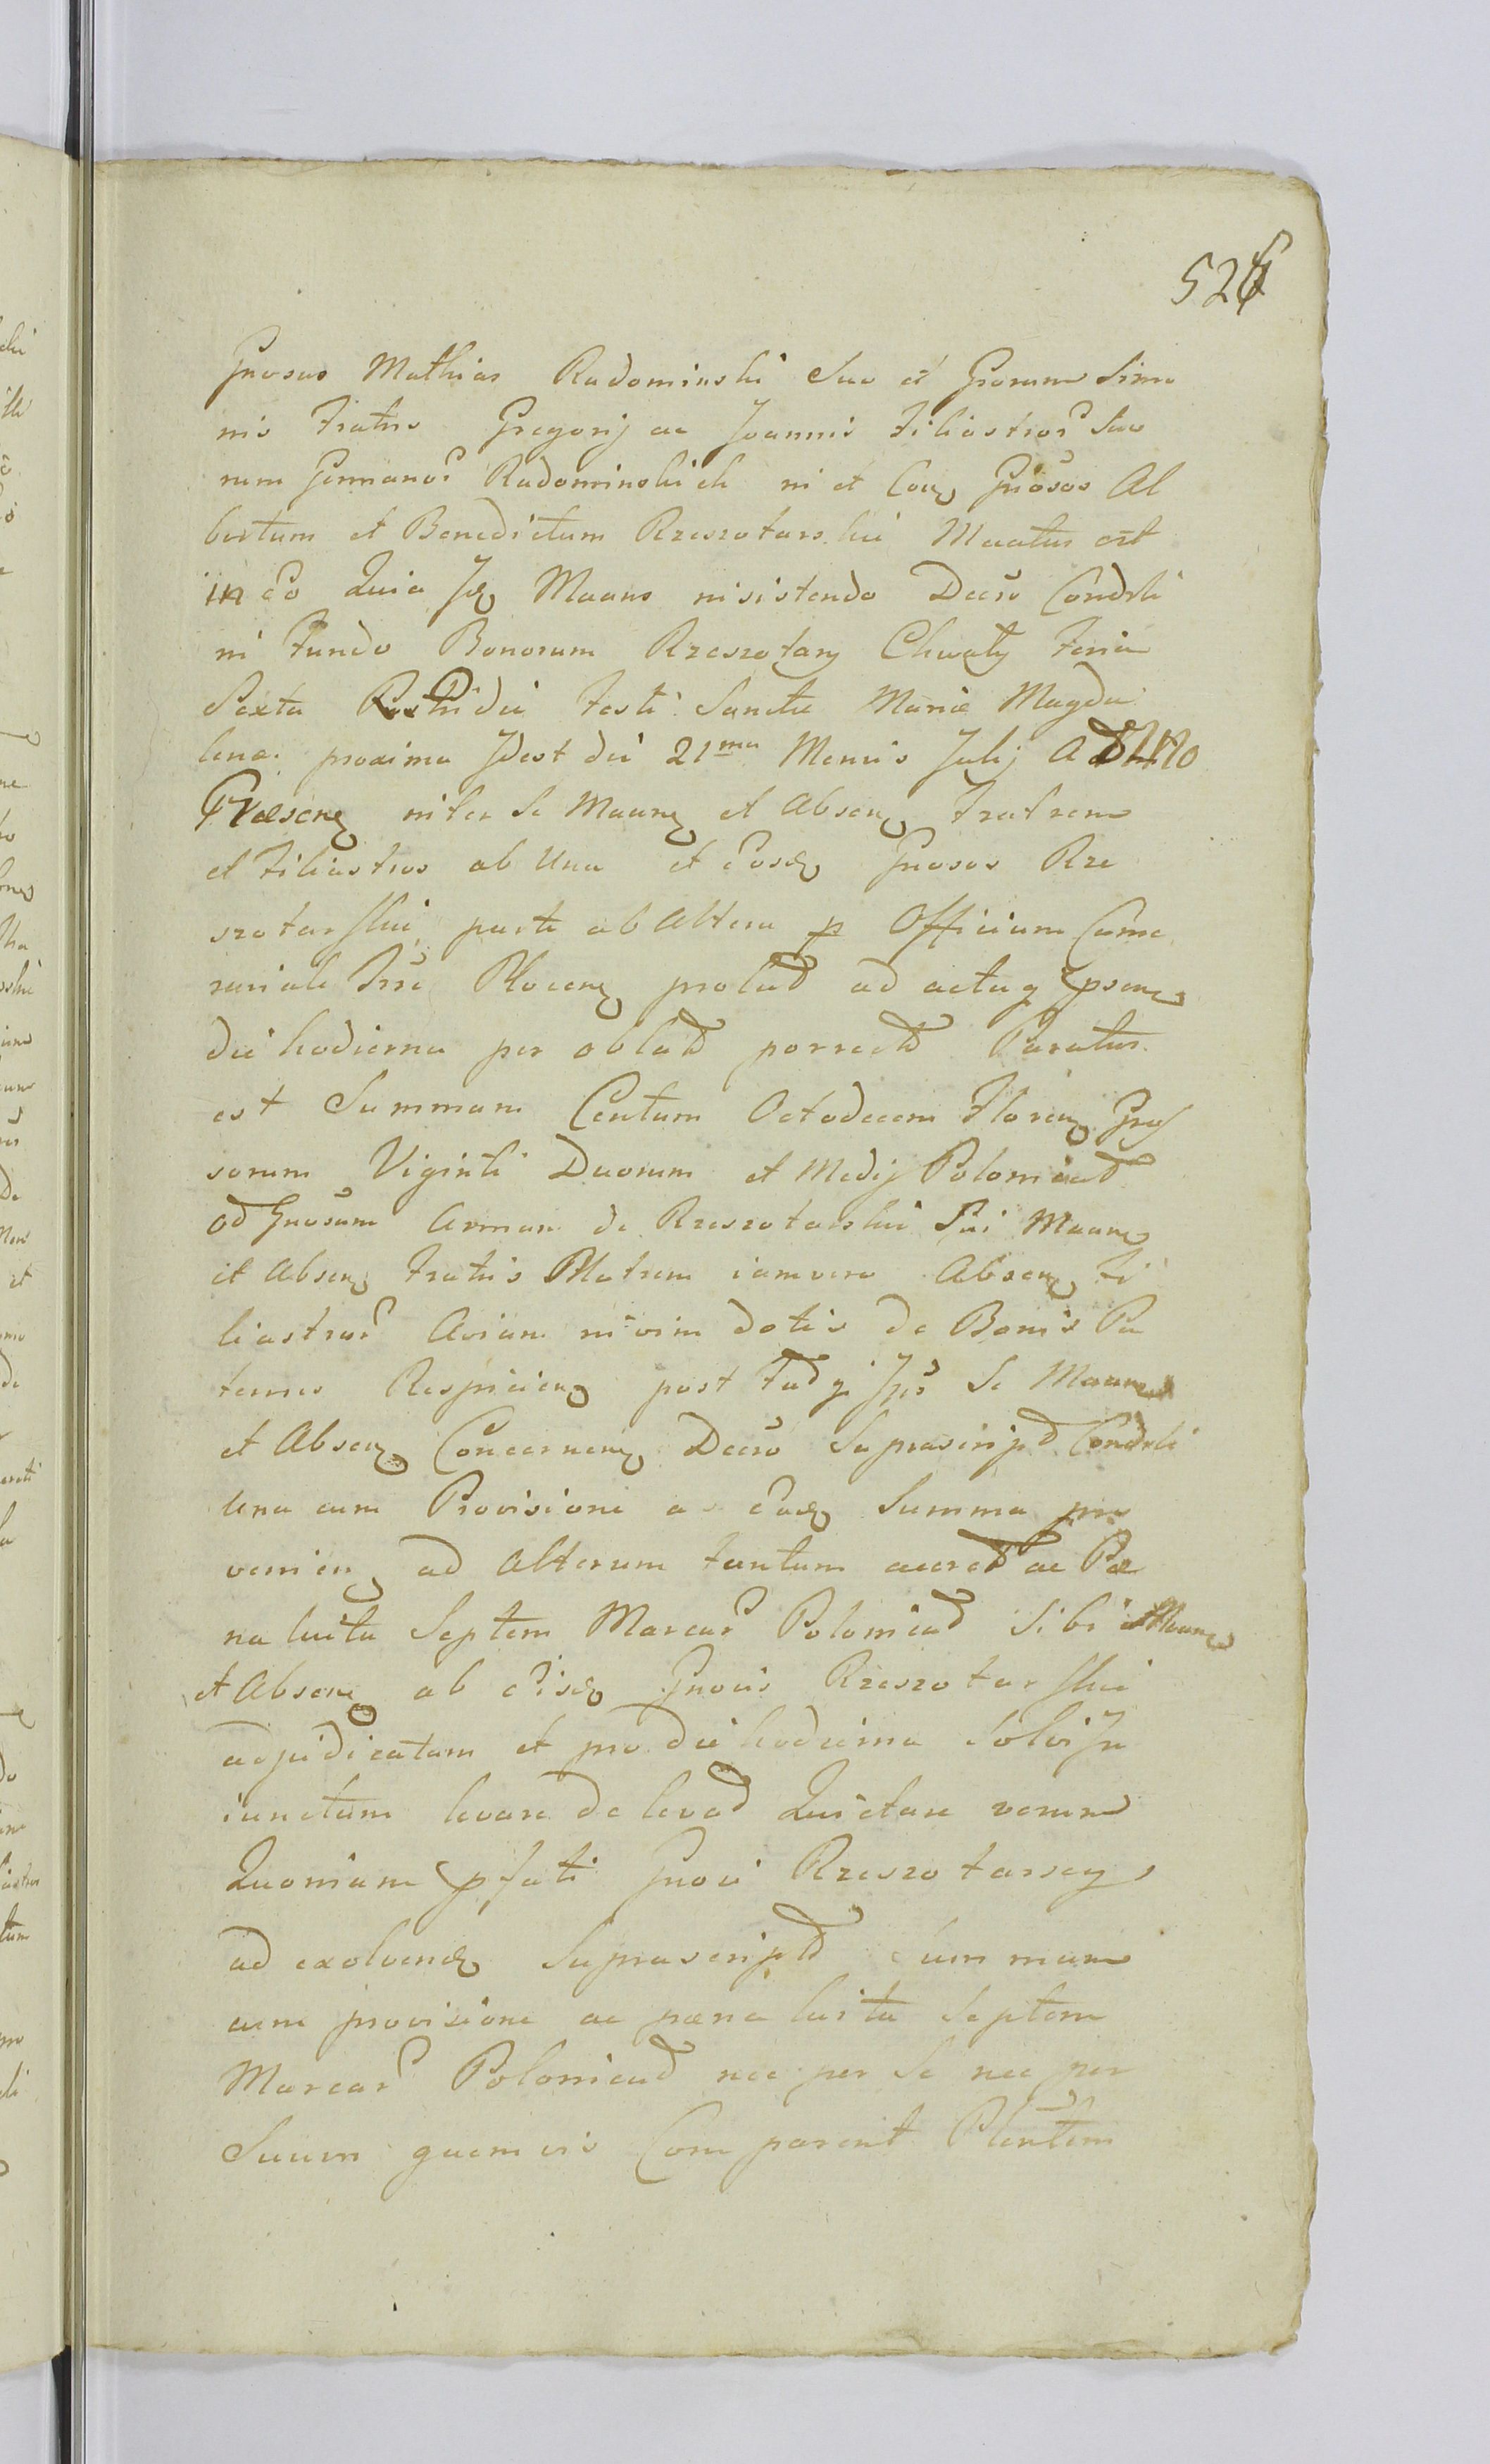 526
Gnosus Mathias Radominski Suo et Gnorum Simo
nis Fratris Gregorij ac Joannis Filiastror Suo
rum Germanor Radominskich in et Con Gnosos Al
bertum et Benedictum Rzeszotarskie Maatus est
in eo Quia Id Maans insistendo Decro Condrli
in Fundo Bonorum Rzeszotary Chwały Feria
Sexta Postridie Festi Sanctae Mariae Magda
lenae proxima Idest die 21ma Mensis Julij A
Praesen inter Se Maan et Absen Fratrem
et Filiastros ab Una et Eosd Gnosos Rze
szotarskie parte ab Altera p Officium Came
rariale Trre Plocen prolat ad acta q psen
die hodierna per oblat porrect Paratus
est Summam Centum Octodecem Floren Gros
sorum Viginti Duorum et Medij Polonical
ad Gnosam Annam de Rzeszotarskie Sui Maan
et Absen Fratris Matrem iamvero Absen Fi
liastror Aviam in vim dotis de Bonis Pa
ternis Respicien post Fat q Se Maan
et Absen Concernen Decro Suprascript Condrli
Una cum Provisione a Ead Summa pro
venien ad Alterum tantum accret ac Pae
na luita Septem Marcar Polonical Sibi Maan
et Absen ab Eisd Gnosis Rzeszotarskie
adjudicatam et pro die hodierna Solvi In
iunctam levare de levat Quietare verum
Quoniam pfati Gnosi Rzeszotarscy
ad exolvend Suprascript Summam
cum provisione ac paena luita Septem
Marcar Polonical nec per Se nec per
Suum quemvis Comparent Plentem